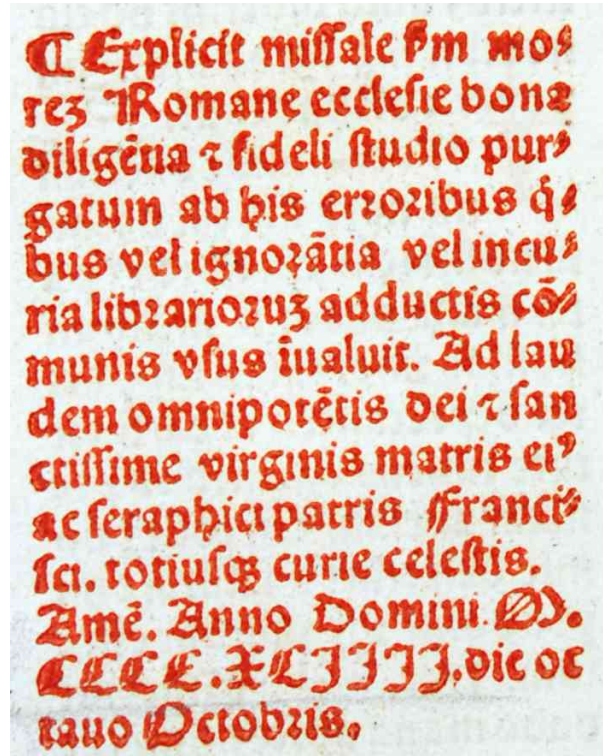 ¶ Explicit missale ẜm mo⸗
reꝫ Romane ecclesie bona
diligētia ⁊ fideli studio pur⸗
gatum ab his erroribus q̇⸗
bus vel ignorātia vel incu⸗
ria librarioruꝫ adductis cō⸗
munis vsus īualuit. Ad lau
dem omnipotētis dei ⁊ san
ctissime virginis matris eiꝰ
ac seraphici patris Franci⸗
sci. totiusqꝫ curie celestis.
Amē. Anno Domini. M.
CCCC.XCIIII. die oc
tauo Octobris.